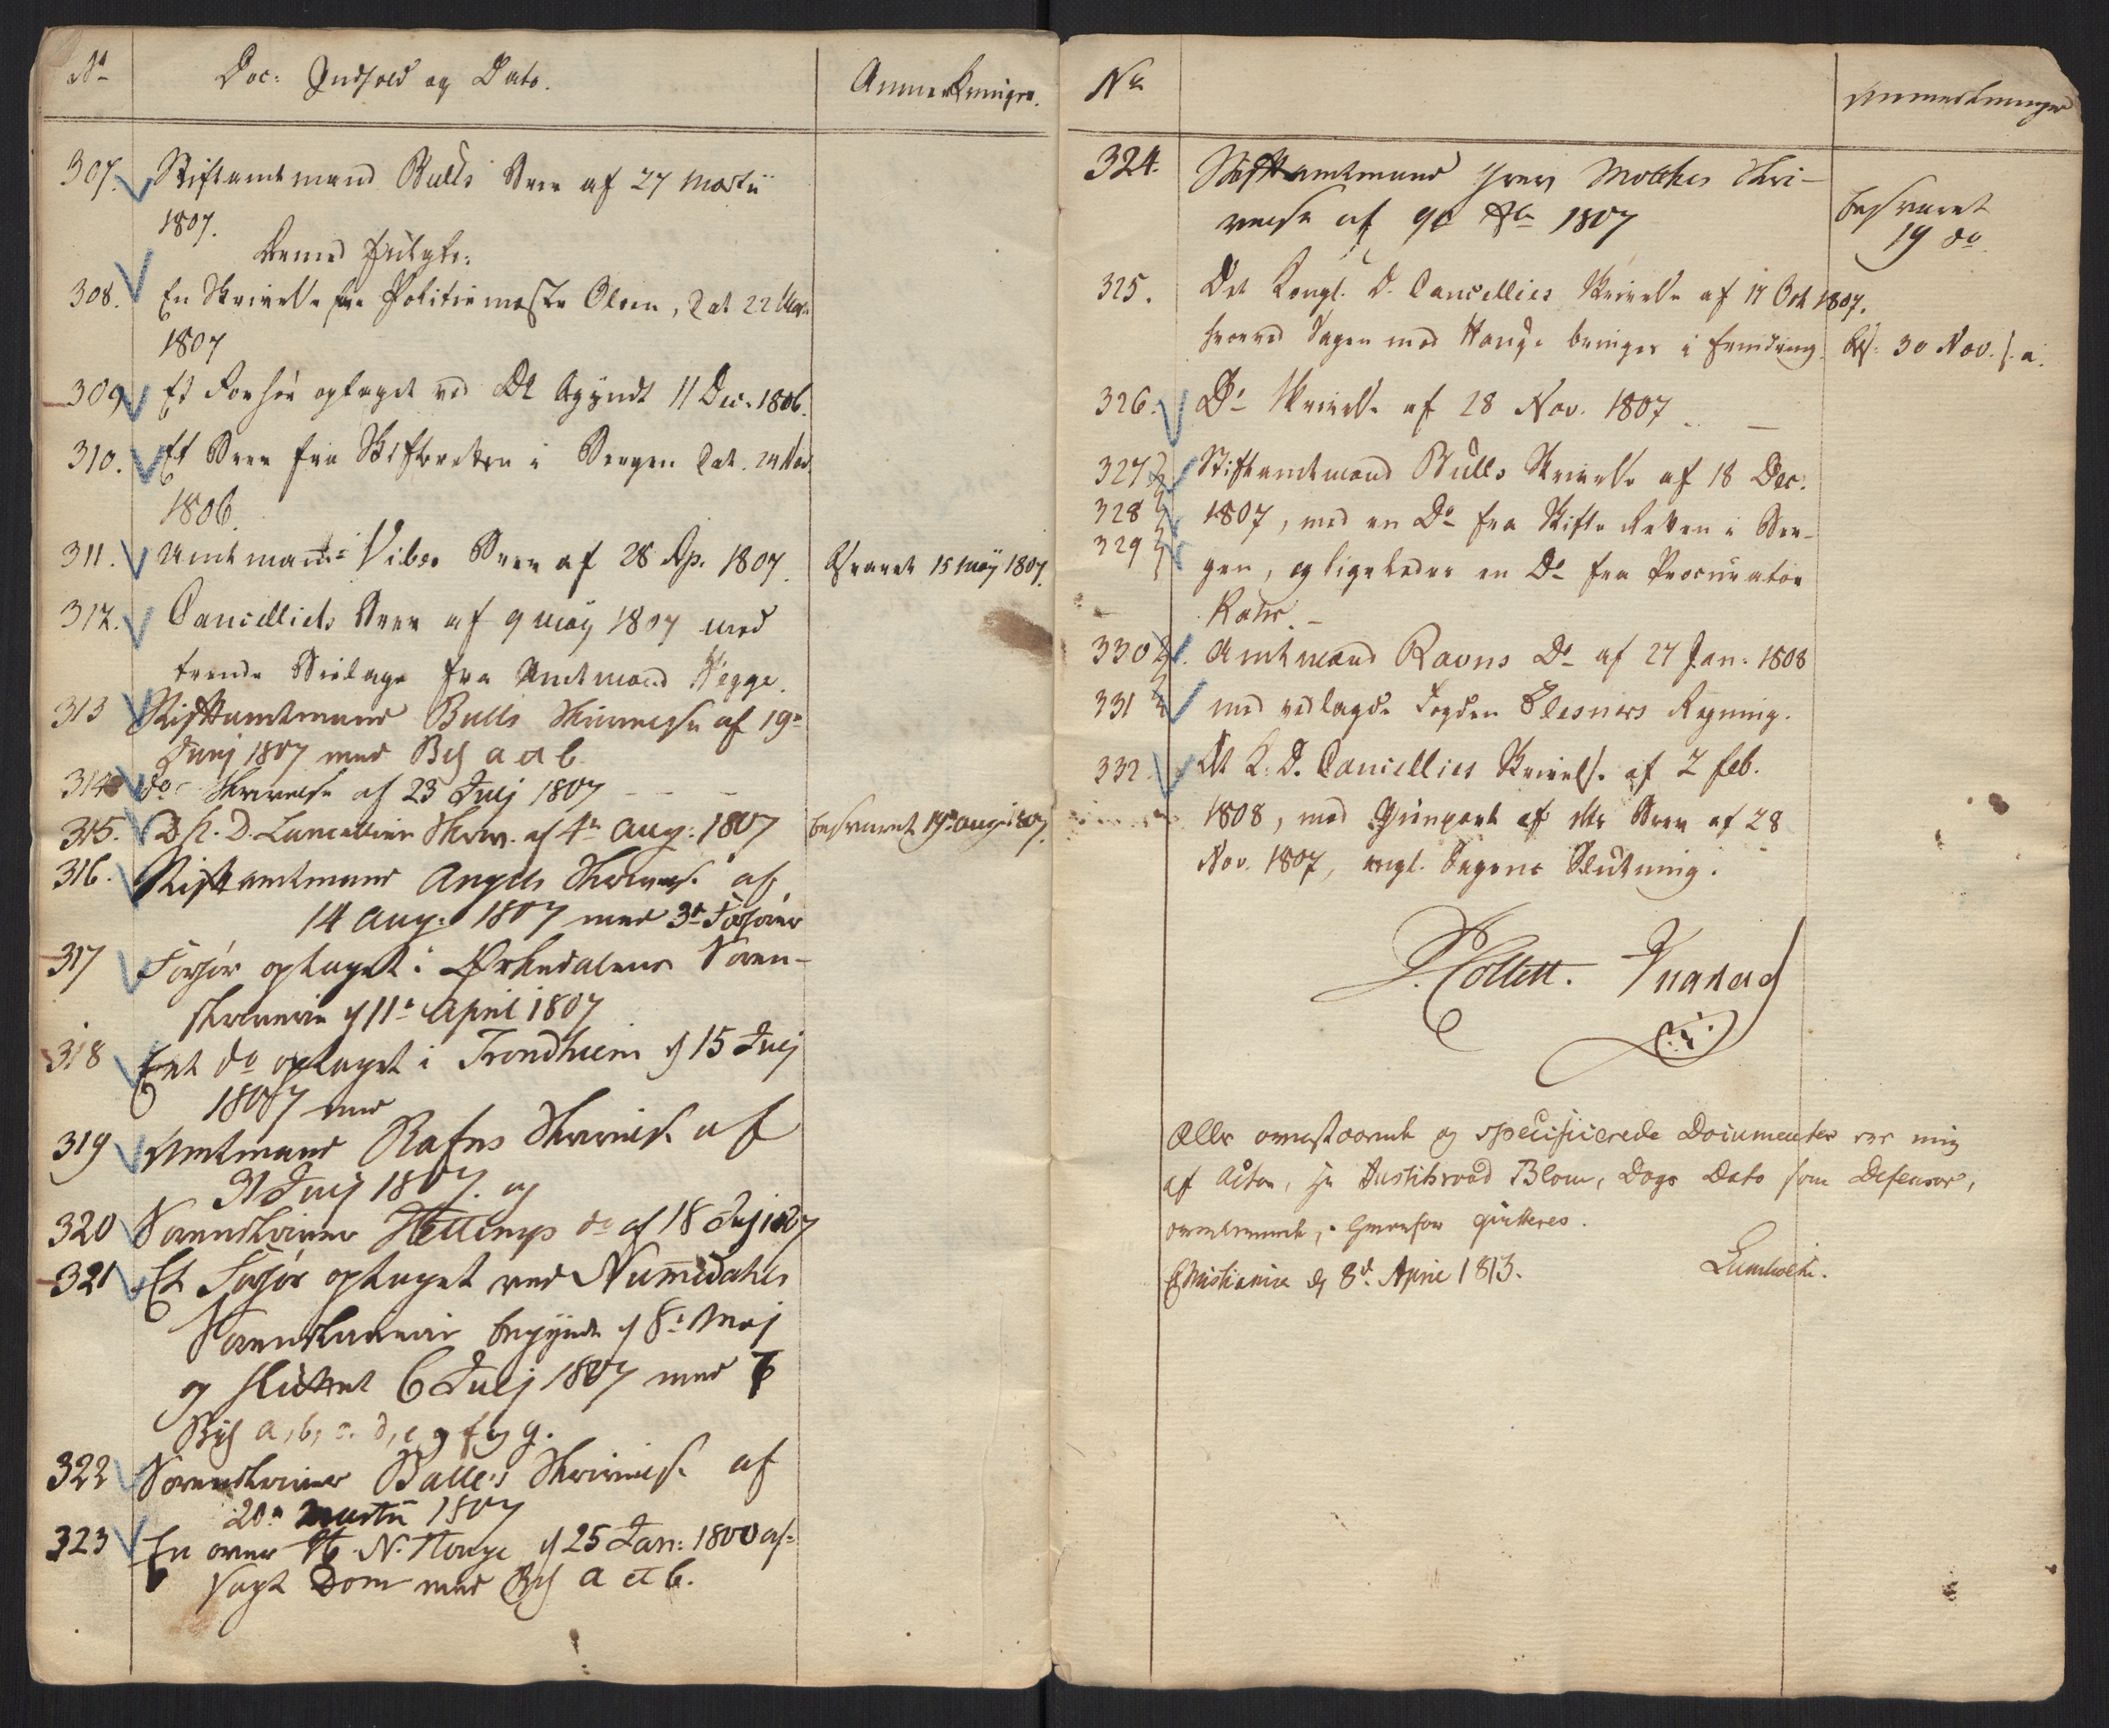 No
Doc: Indhold og Dato.
Anmerkninger.
307. Stiftamtmand Bulls Brev af 27 Martii
1807.
Dermed fulgte:
308. En Skrivelse fra Politiemester Olsen, Dat 22
1807
309 Et Forhør optaget ved 11 Dec. 1806.
310. Et Brev fra Skifteretten i Bergen Dat. 24
1806.
311. Amtmand Vibes Brev af 28 Ap. 1807. Besvaret 15 Maij 1807.
312. Cancelliets Brev af 9 Maij 1807 med
trende Bielage fra Amtmand Hegge.
313 Stiftamtmand Bulls Skrivelse af 19de
Junj 1807 med Bil a et b.
314 do Skrivelse af 23 Julj 1807 - - -
315. D. K. D. Cancellies Skriv. af 4de Aug: 1807 besvaret 19de Aug 1807.
316. Stiftamtmand Angells Skrivelse af
14 Aug. 1807 med 3de Forhører
317 Forhør optaget i Ørkedalens Soren-
skriverie d 11te April 1807
318 Eet do optaget i Trondhiem d 15 Julj
1807 med
319 Amtmand Rafns Skrivelse af
31 Julj 1807. og
320 Sorenskriver do af 18 Julj 1807
321 Et Forhør optaget ved Nummedahls
Sorenskriverie begyndt d 8de Maj
og sluttet 6 Julj 1807 med 7
Bil a, b, c. d, e, f og g.
322 Sorenskriver Balles Skrivelse af
20de Martii 1807
323 En over H. N. Hauge d 25 Jan: 1800 af-
sagt Dom med Bil a et b.
No
Anmerkninger
324. Stiftamtmand Grev Moltkes Skri-
velse af 9de 1807
besvaret
19 do
325. Det Kongl. D. Cancellies Skrivelse af 17 Oct 1807.
hvorved Sagen mod Hauge bringes i Erindring. Bes: 30 Nov. s. a.
326. Do Skrivelse af 28 Nov. 1807. -
327 Stiftamtmand Bulls Skrivelse af 18 Dec:
328 1807, med en Do fra Skifte Retten i Ber-
329 gen, og ligeledes en Do fra Procurator
Rohr. -
330 Amtmand Ravns Do af 27 Jan: 1808
331 med vedlagde Fogden Elesners Regning.
332 Det K: D. Cancellies Skrivelse af 2 Feb.
1808, med Gienpart af dets Brev af 28
Nov. 1807, angl. Sagens Slutning.
Collett.
Alle ovenstaaende og specificerede Documenter ere mig
af Actor, Hr Justitsraad Blom, Dags Dato som Defensor,
overleveret, herfor qvitteres.
Christiania d 8de April 1813.
Lumholtz.